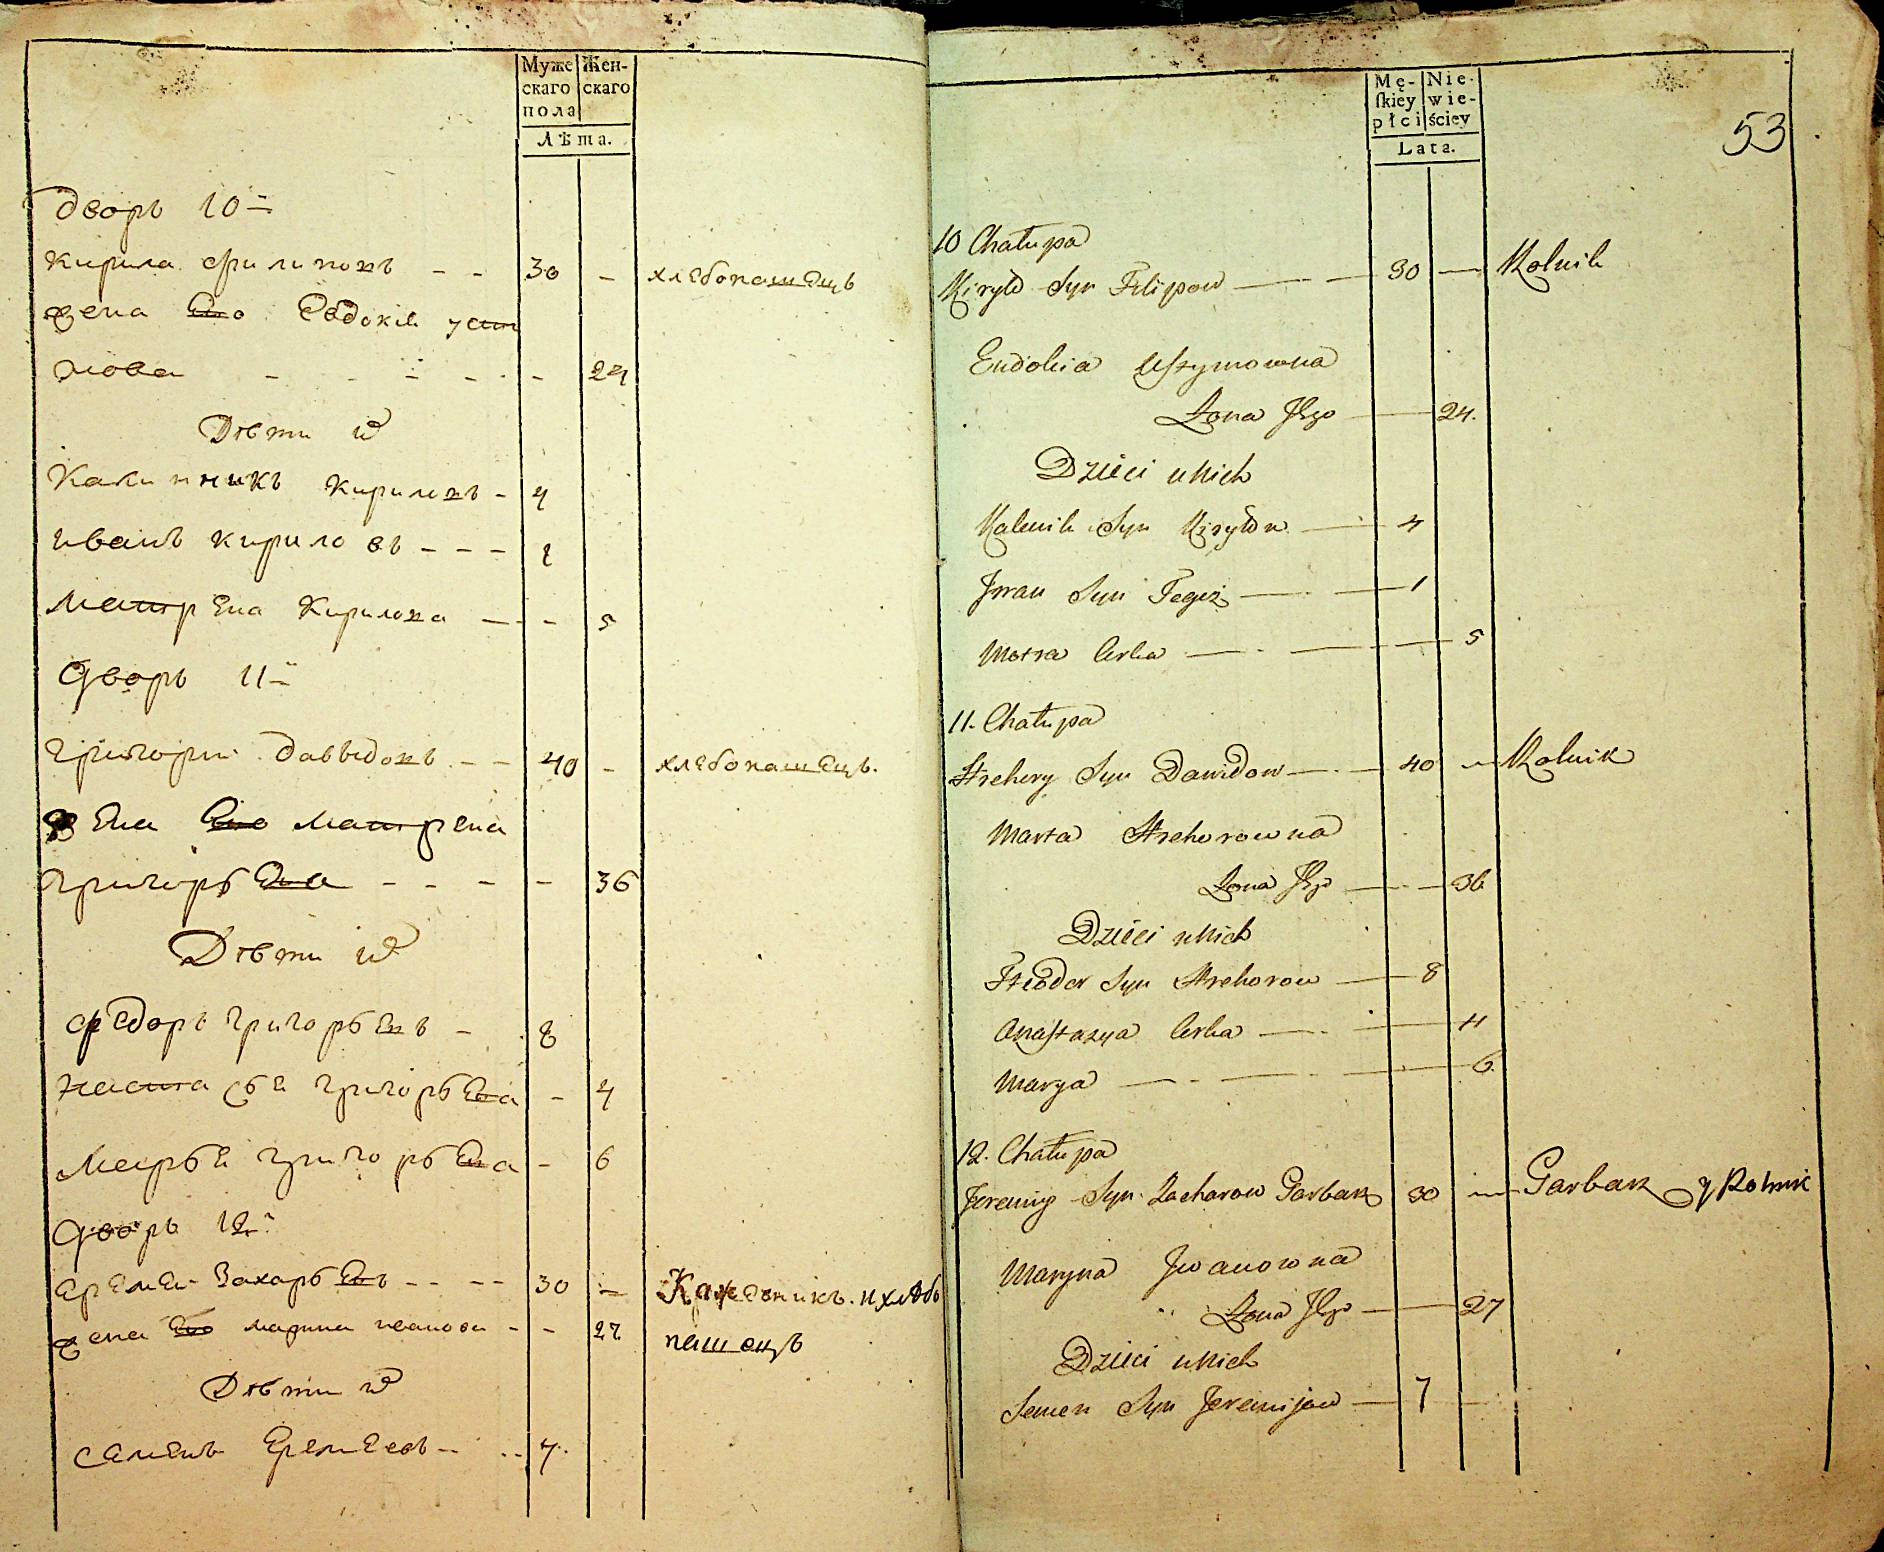 Муже
скаго
пола
Жен-
скаго
Лѣта.
дворъ 10й
кирила филиповъ - - 30 - хлебопашецъ
жена его евдокіѣ усти
мова - - - - - 24
Дѣти их
Калинникъ кириловъ - 4
иванъ кириловъ - - - 1
Матрена Кирилова - - 5
дворъ 11й
григорий давыдовъ - - 40 - хлебопашецъ.
жена его матрена
григорьева - - - - 36
Дѣти их
федоръ григорьевъ - 8
настасья григорьева - 4
Марья григорьева - 6
дворъ 12й
еремеи Захарьевъ - - - - 30 - Кожевникъ. и хлѣбо
жена его марина иванова - - 27 пашецъ
Дѣти их
семенъ еремеевъ - - - 7.
Mę-
skiey
płci
Nie-
wie-
ściey
Lata.
53
10 Chałupa
Kiryło Syn Filipow — 30 — Rolnik
Eudokia Ustymowna
Żona Jego — 24.
Dzieci u Nich
Kalenik Syn Kiryłow — 4
Jwan Syn Tegoż — 1
Motra Corka — 5
11. Chałupa
Hrehory Syn Dawidow — 40 — Rolnik
Marta Hrehorowna
Żona Jego — 36
Dzieci u Nich
Fteodor Syn Hrehorow — 8
Anastazya Corka — 4
Marya — 6
12. Chałupa
Jeremij Syn Zacharow Garbarz 30 — Garbarz y Rolnik
Maryna Jwanowna
Żona Jego — 27
Dzieci u Nich
Semen Syn Jeremijow — 7